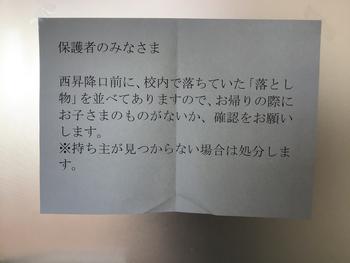 保護者のみなさま
西昇降口前に、校内で落ちていた「落とし
物」を並べてありますので、お帰りの際に
お子さまのものがないか、確認をお願い
します。
※持ち主が見つからない場合は処分しま
す。